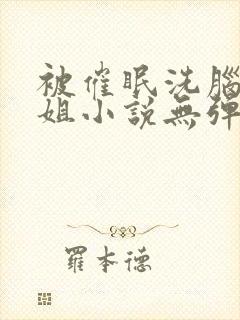 被催眠洗腦
姐小説無彈
羅本德